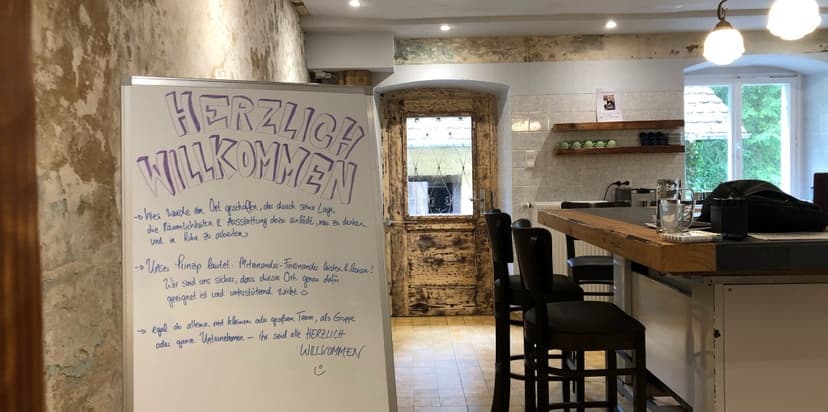 HERZLICH
WILLKOMMEN
→ Hier wurde ein Ort geschaffen, der durch seine Lage,
die Räumlichkeiten & Ausstattung dazu einlädt, neu zu denken
und in Ruhe zu arbeiten.
→ Unser Prinzip lautet: Miteinander-Füreinander
Wir sind uns sicher, dass dieser Ort genau dafür
geeignet ist und unterstützend wirkt ☺
→ egal ob alleine, mit kleinem oder großem Team, als Gruppe
oder ganze Unternehmen – ihr seid alle HERZLICH
WILLKOMMEN
☺